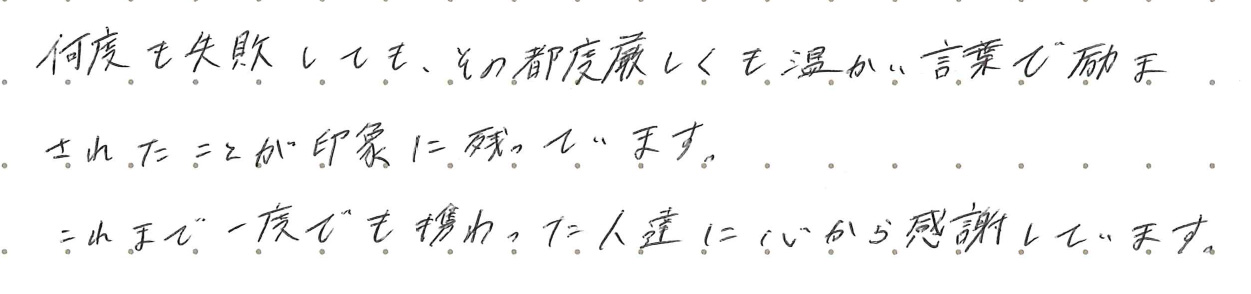 何度も失敗しても、その都度厳しくも温かい言葉で励ま
されたことが印象に残っています。
これまで一度でも携わった人達に心から感謝しています。